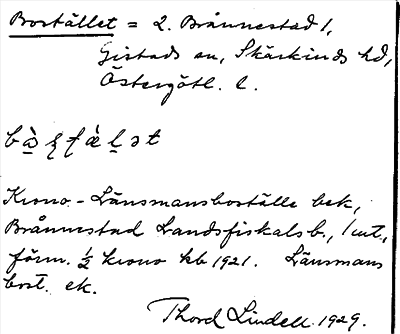 Bostället = 2. Brånnestad 1,
Gistads sn, Skärkinds hd,
Östergötl. l.
Krono-Länsmansboställe bek,
Brånnestad Landsfiskalsb., 1 mt.,
förm. ½ krono kb 1921. Länsmans
bost. ek.
Thord Lindell 1929.